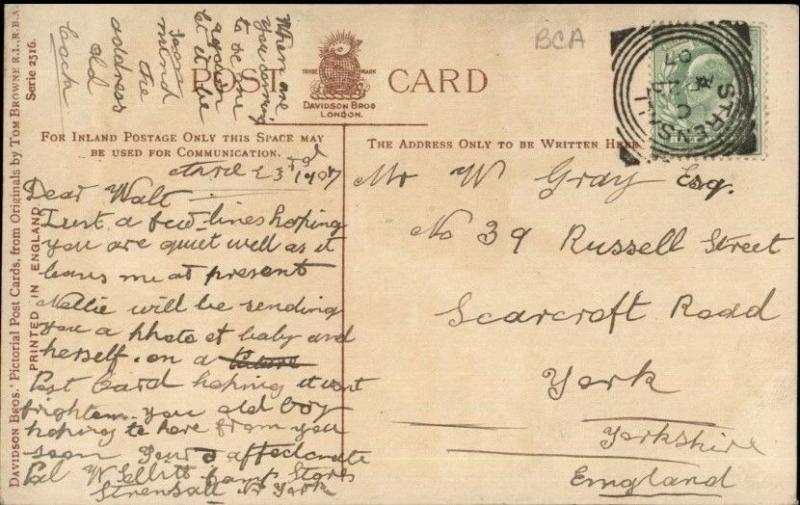 Where are
you coming
to be one
again
let it be
soon
mind
the
address
Old
Cock
BCA
POST CARD
TRADE MARK
DAVIDSON BROS
LONDON.
STRENSALL
07
FOR INLAND POSTAGE ONLY THIS SPACE MAY
BE USED FOR COMMUNICATION.
THE ADDRESS ONLY TO BE WRITTEN HERE
DAVIDSON BROS.' Pictorial Post Cards, from Originals by TOM BROWNE R.I., R.B.A. Serie 2516.
PRINTED IN ENGLAND
April 23rd 1907
Dear Walt
Just a few lines hoping
you are quiet well as it
leaves me at present
Nellie will be sending
you a photo of baby and
herself. on a
Post Card hoping it wont
frighten you old boy
hoping to hear from you
soon Your affectionate
Pal W Camp Stores
Strensall Nr York
Mr W Gray Esq.
No 39 Russell Street
Scarcroft Road
York
Yorkshire
England